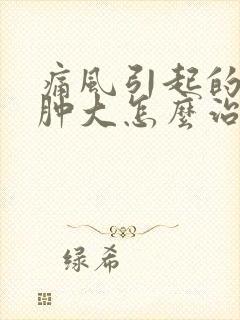 痛风引起的
肿大怎麼治
绿希